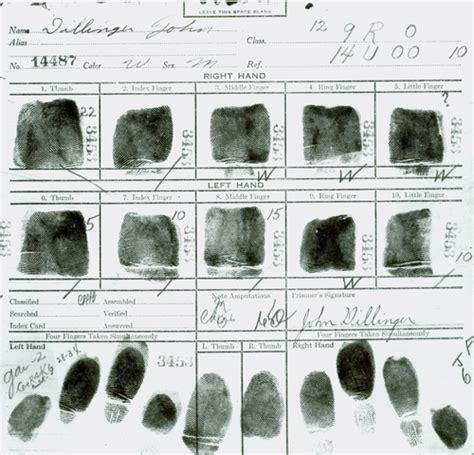 LEAVE THIS SPACE BLANK
Name Dillinger John Class. 12 9 R O
Alias 14 U OO 10
No. 14487 Color W Sex M Ref.
RIGHT HAND
1. Thumb 2. Index Finger 3. Middle Finger 4. Ring Finger 5. Little Finger
22 ?
3453
W W W
LEFT HAND
6. Thumb 7. Index Finger 8. Middle Finger 9. Ring Finger 10. Little Finger
5 10 15
W 10
Classified Assembled Note Amputations Prisoner's Signature
Searched Verified
Index Card Answered John Dillinger
Four Fingers Taken Simultaneously Four Fingers Taken Simultaneously
Left Hand 3453 L. Thumb R. Thumb Right Hand